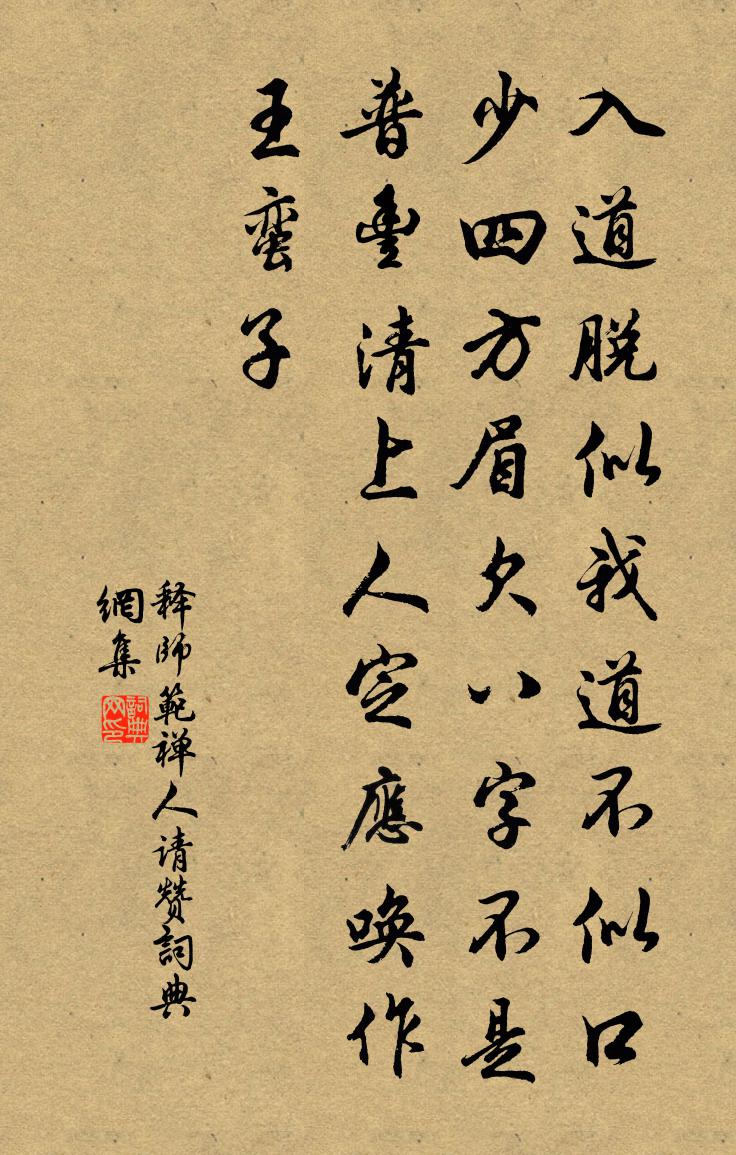 入道脱似我道不似口
少四方眉欠八字不是
普豐清上人定應唤作
王蛮子
释師範禅人请赞詞典
網集
詞典